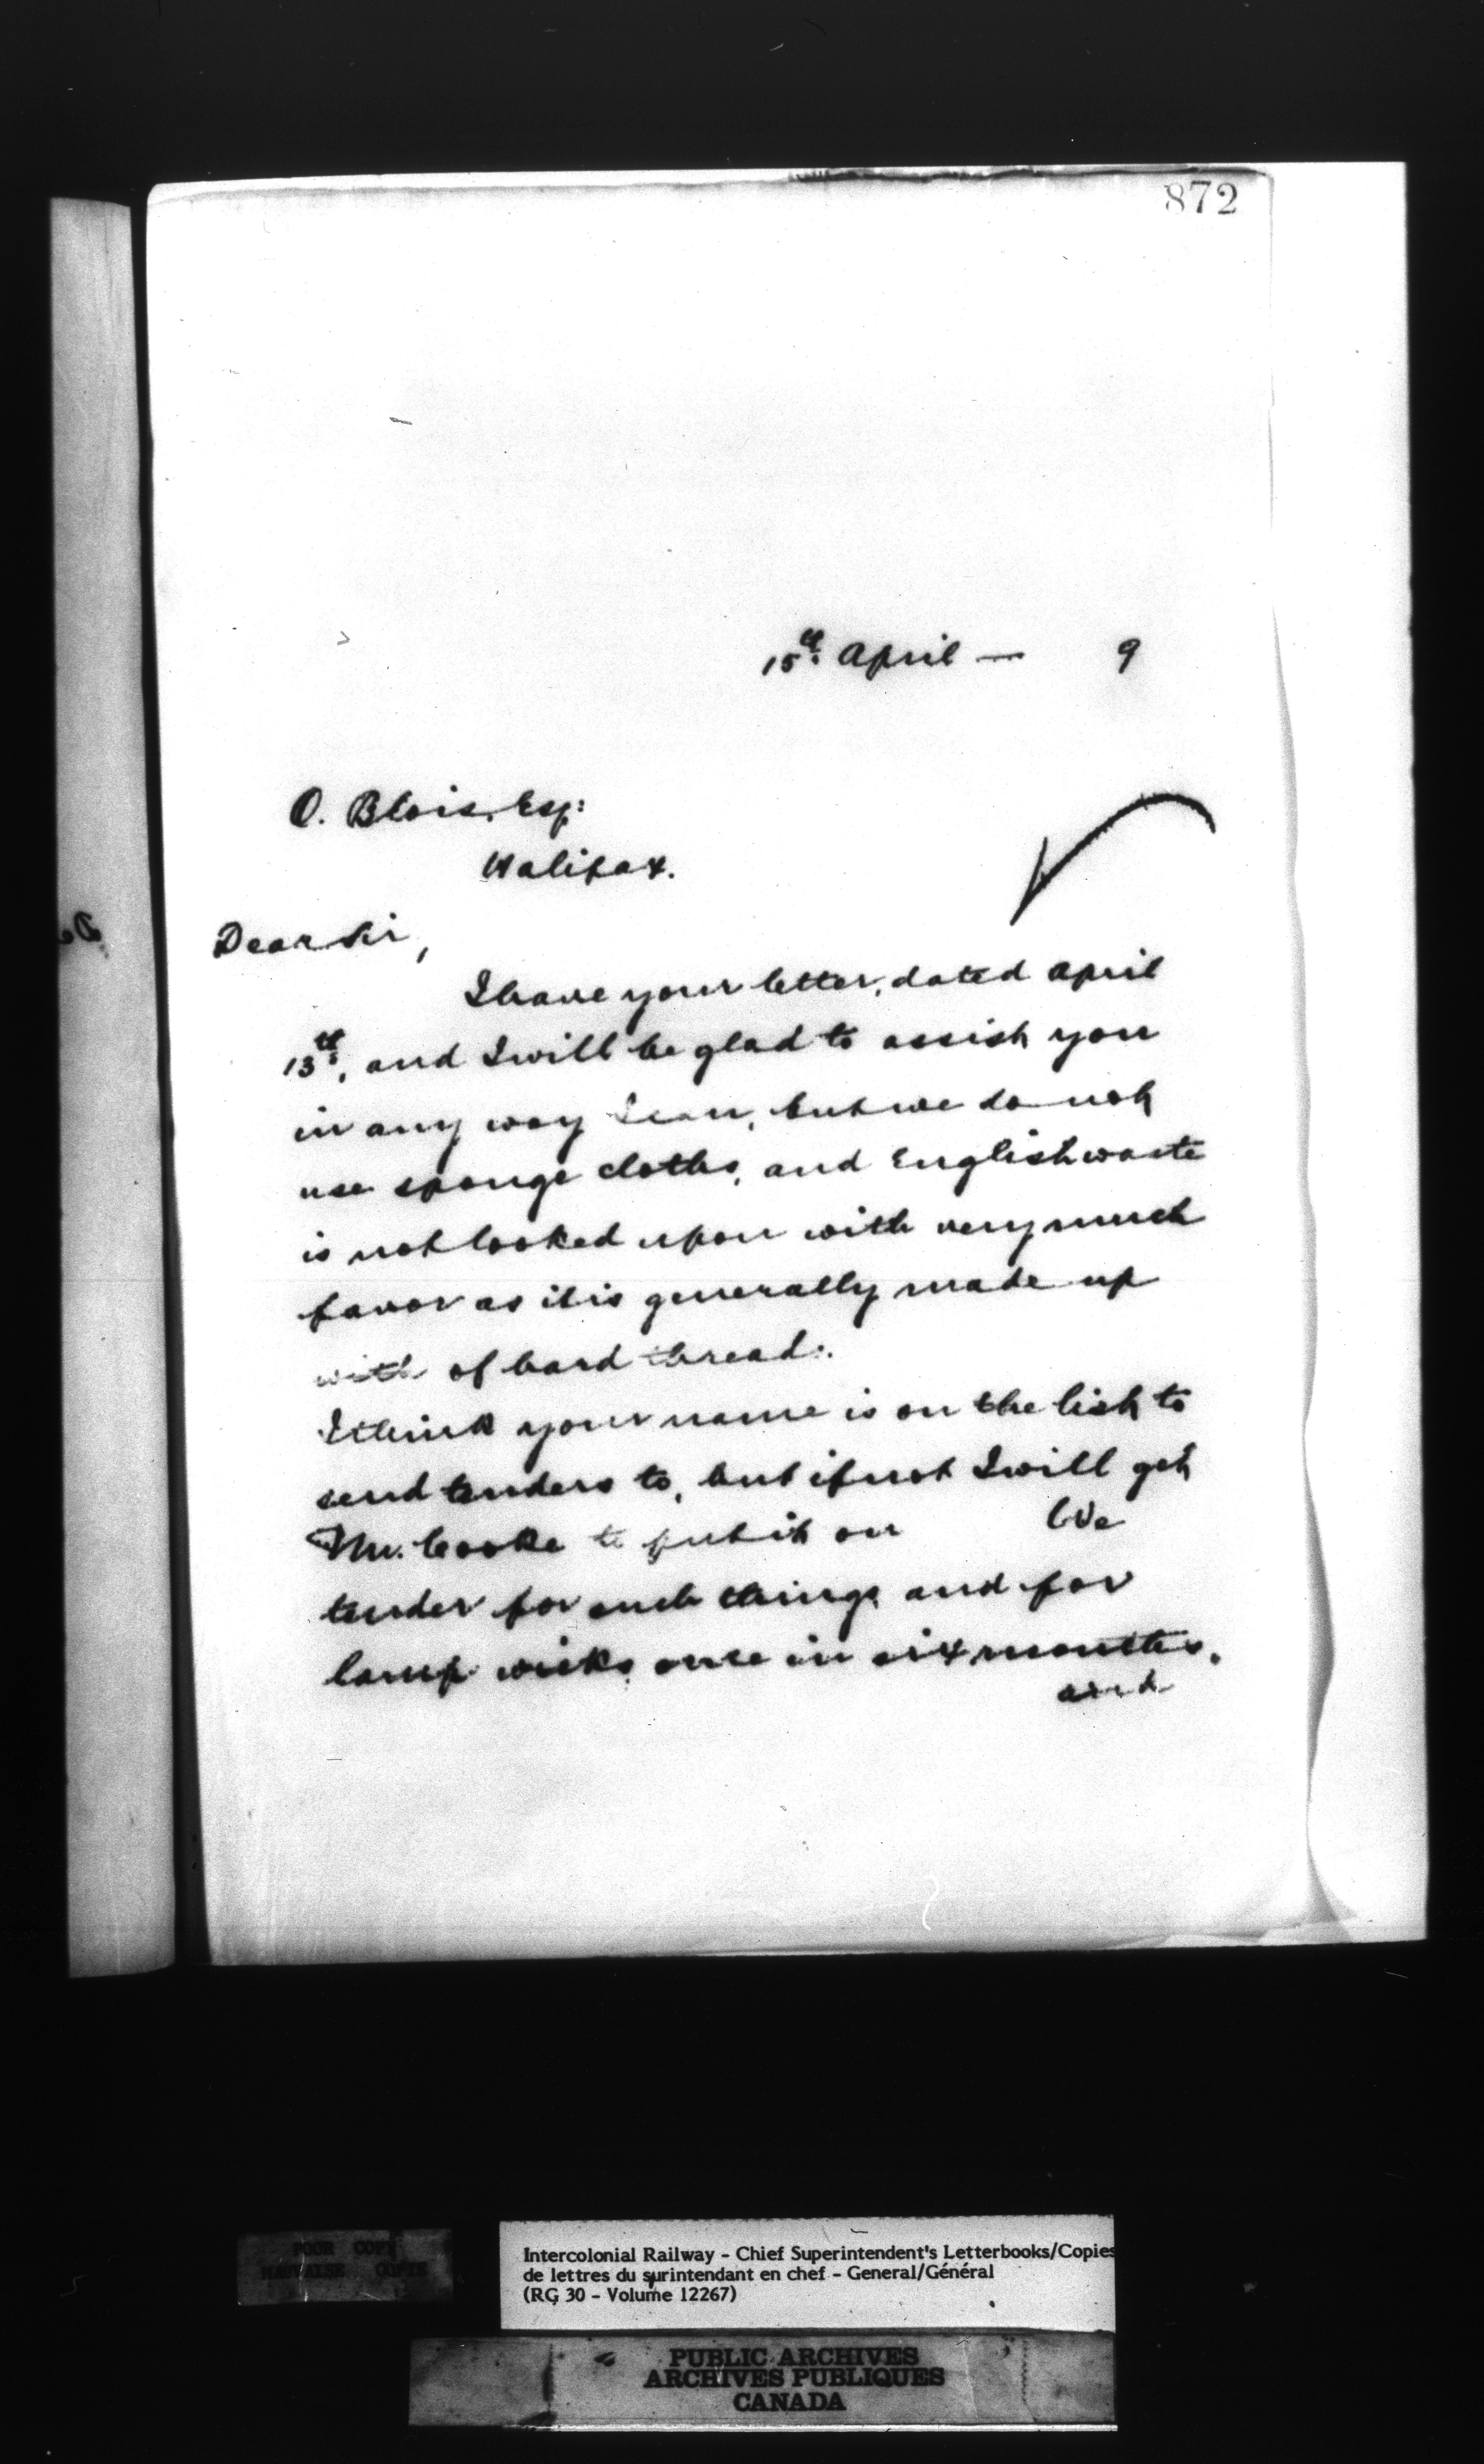 872
15th April — 9
O. Blois, Esq:
Halifax.
Dear Sir,
I have your letter, dated April
13th, and I will be glad to assist you
in any way I can, but we do not
use sponge cloths, and English waste
is not looked upon with very much
favor as it is generally made up
with of hard thread.
I think your name is on the list to
send tenders to, but if not I will get
Mr. Cooke to put it on We
tender for such things and for
lamp wicks once in six months.
and
POOR COPY
MAUVAISE COPIE
Intercolonial Railway - Chief Superintendent's Letterbooks/Copies
de lettres du surintendant en chef - General/Général
(RG 30 - Volume 12267)
PUBLIC ARCHIVES
ARCHIVES PUBLIQUES
CANADA